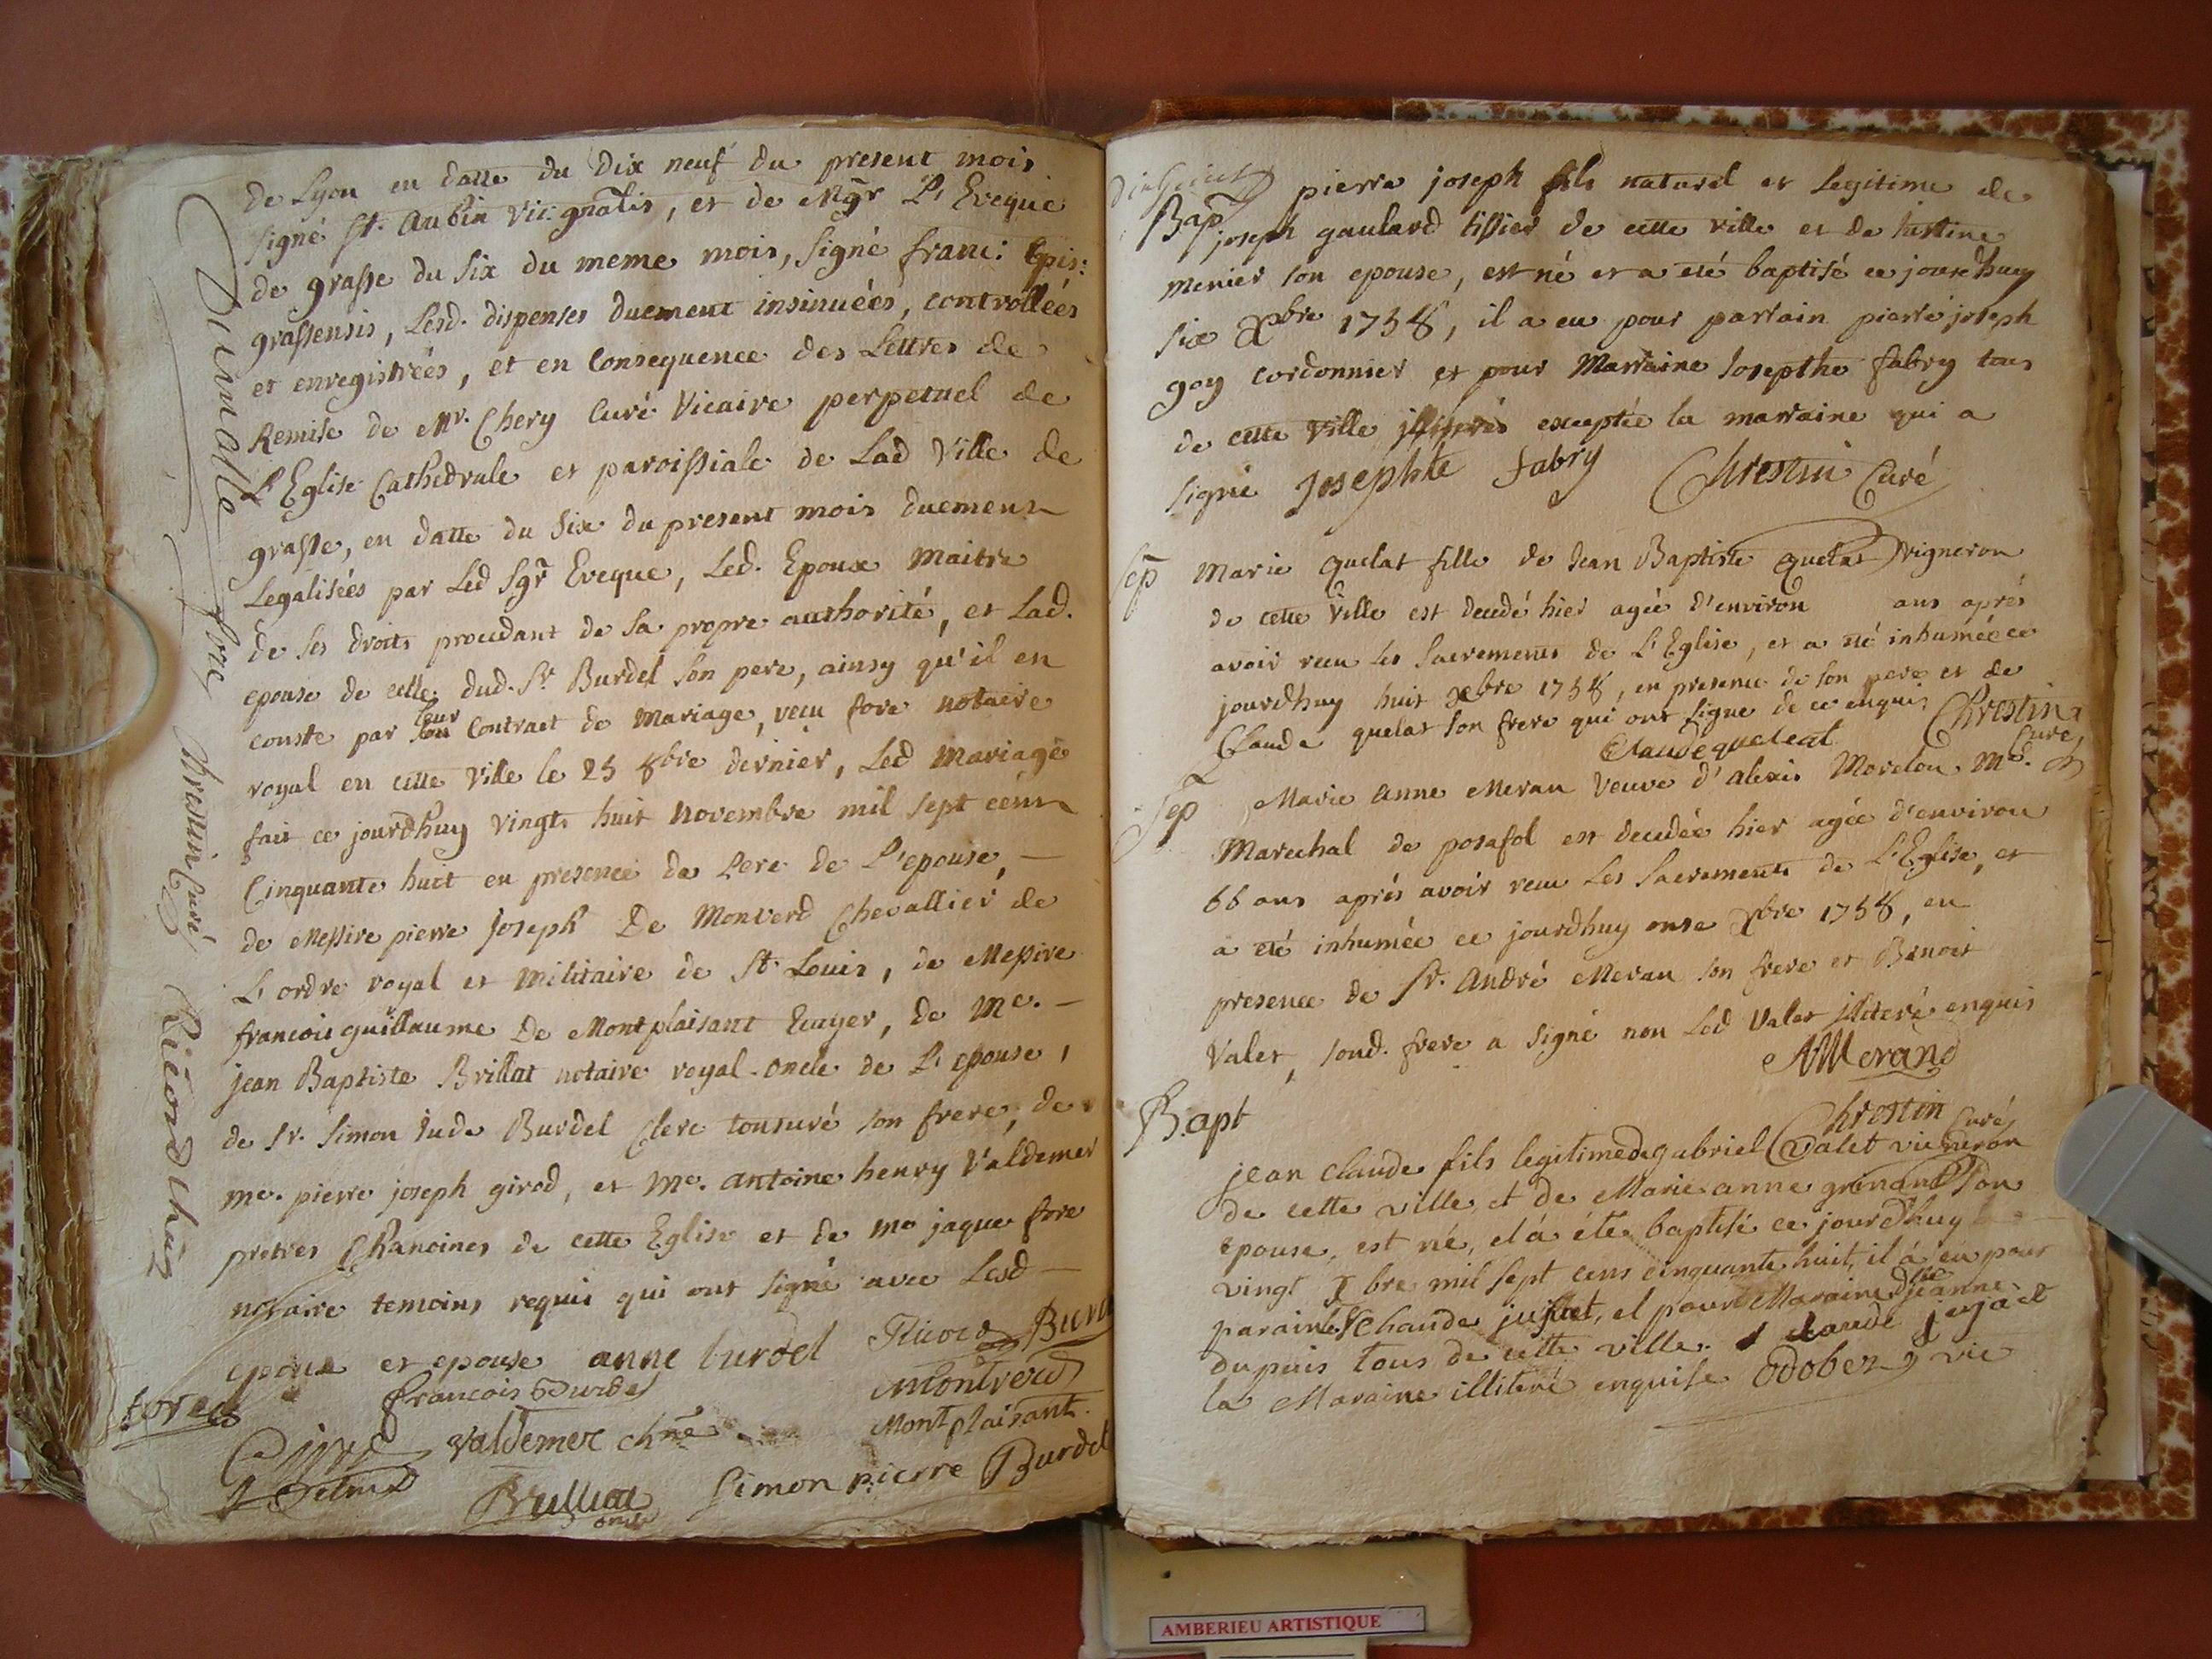 De Lyon en datte du Dix neuf du present mois
signé St. Aubin vic: gnalis, et de Mgr L'Eveque
de grasse du six du meme mois, signé franc: Epis:
grassensis, Lesd. dispenses duement insinuées, controllées
et enregistrées, et en consequence des Lettres de
Remise de Mr. Chery Curé Vicaire perpetuel de
L'Eglise Cathedrale et paroissiale de Lad Ville de
grasse, en datte du six du present mois duement
Legalisées par Led Sgr Eveque, Led. Epoux maitre
de ses droits procedant de sa propre authorité, et Lad.
epouse de celle dud. Sr Burdel son pere, ainsy qu'il en
conste par leur Contract de mariage, recu fore notaire
royal en cette ville le 25 8bre dernier, Led mariage
fait ce jourdhuy vingt huit novembre mil sept cent
Cinquante huit en presence du Pere de L'epouse, —
de Messire pierre Joseph De Montverd Chevallier de
L'ordre royal et militaire de St. Louis, de Messire
francois guillaume De Montplaisant Ecuyer, de Me. —
jean Baptiste Brillat notaire royal oncle de L'epouse,
de Sr. Simon Jude Burdel Clerc tonsuré son frere, de
me. pierre joseph girod, et Me. antoine henry Valdemer
pretres Chanoines de cette Eglise et de me jaque fore
notaire temoins requis qui ont signé avec Lesd —
epoux et epouse anne burdel Ricord
francois Burdel Montverd
Valdemer chne Montplaisant
Brillat oncle Simon pierre Burdel
fore
Chrestin Curé
Ricord
Bap pierre joseph fils naturel et legitime de
joseph gaulard tissier de cette ville et de justine
menier son epouse, est né et a eté baptisé ce jourdhuy
six Xbre 1758, il a eu pour parrain pierre joseph
goy cordonnier et pour Marraine Josepthe fabry tous
de cette ville exceptée la marraine qui a
signé Josephte fabry Chrestin Curé
Sep Marie quelat fille de Jean Baptiste quelat vigneron
de cette ville est decedé hier agée d'environ ans après
avoir recu les Sacrements de L'Eglise, et a eté inhumée ce
jourdhuy huit xbre 1758, en presence de son pere et de
Claude quelat son frere qui ont signe de ce enquis Chrestin
Claude queleat Curé
Sep Marie anne Meran veuve d'alexis Morelon Me.
Marechal de posafol est decedée hier agée d'environ
66 ans après avoir recu Les Sacrements de L'Eglise, et
a eté inhumée ce jourdhuy onse Xbre 1758, en
presence de Sr. André Meran son frere et Benoit
Valet, soud. frere a signé non Led Valet illiteré enquis
AMerand
Chrestin Curé
Bapt
jean claude fils legitime de gabriel Valet vigneron
de cette ville, et de Marie anne grinand son
epouse, est né, et à été baptisé ce jourdhuy
vingt X bre mil sept cens cinquante huit, il à eu pour
parain Claude jujat, et pour Maraine jeanne
dupuis tous de cette ville. claude jujat
la Maraine illiteré enquise Odobez vic
AMBERIEU ARTISTIQUE